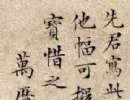 先君寫此
他幅可擬
寶惜之
萬曆